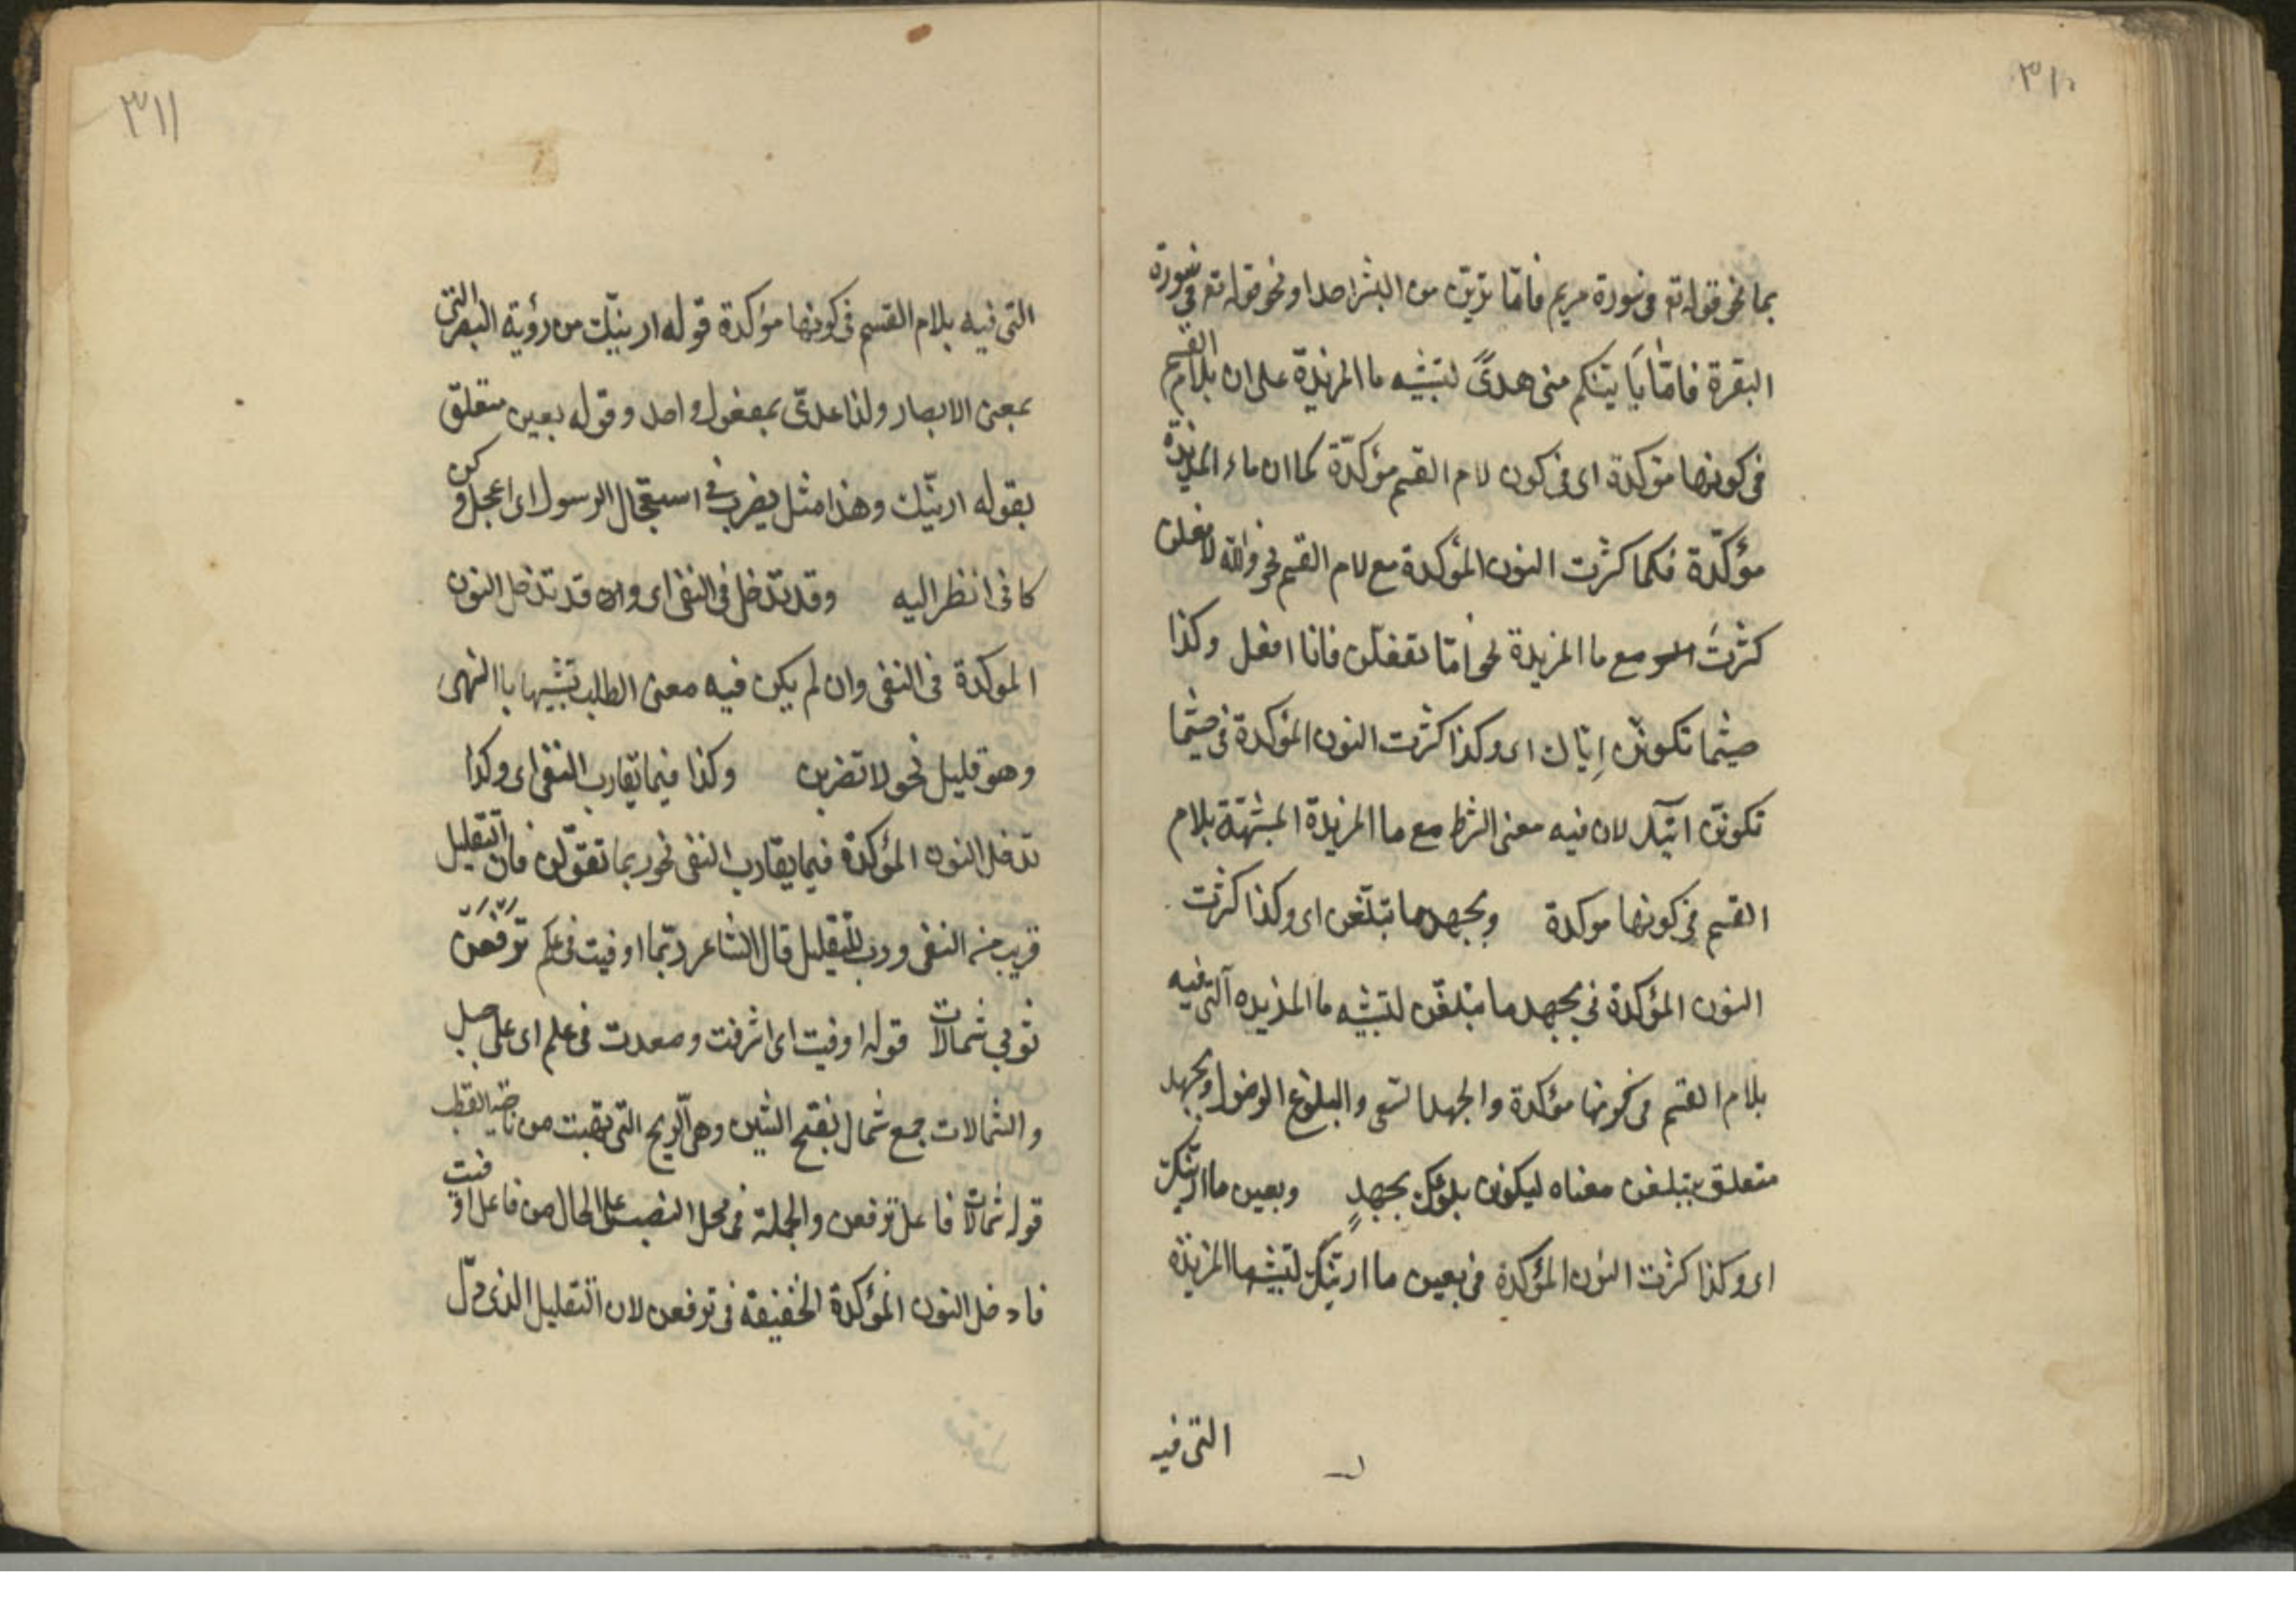 ٣١٠
بما نحو قوله تع فى سورة مريم فامّا ترينّ من البشر احدا ونحو قوله تع فى سورة
البقرة فامّا يَأتينكم منى هدىً لتشبيه ما المزيدة على ان بلام القسم
فى كونها مؤكدة اى فى كون لام القسم مؤكدّة كما ان ما المزيدة
مؤكّدة فكما كثرت النون المؤكدة مع لام القسم نحو والله لافعلن
كثرت مع ما المزيدة نحو امّا تفعلن فانا افعل وكذا
حيثما تكونن اِتيك اى وكذا كثرت النون المؤكدة فى حيثما
تكونن اتيك لان فيه معنى الشرط مع ما المزيدة المشبّهة بلام
القسم فى كونها موكدة وبجهد ما تبلغن اى وكذا كثرت
النون المؤكدة فى بجهد ما تبلغن لتشبيه ما المزيده التى فيه
بلام القسم فى كونها مؤكدة والجهد السعى والبلوغ الوصول وبجهد
متعلق بتبلغن معناه ليكونن بلوغك بجهدٍ وبعين ما ارينّك
اى وكذا كثرت النون المؤكدة فى بعين ما ارينّك لتشبيه ما المزيدة
التى فيه
٣١١
التى فيه بلام القسم فى كونها مؤكدة قوله ارينّك من رؤية البصر التى
بمعنى الابصار ولذا عدّى بمفعول واحد وقوله بعين متعلق
بقوله ارينّك وهذا مثل يضرب فى استعجال الرسول اى اعجل وكن
كانى انظر اليه وقد تدخل فى النفى اى وان قد تدخل النون
الموكدة فى النفى وان لم يكن فيه معنى الطلب تشبيها باالنهى
وهو قليل نحو لا تضربن وكذا فيما يقارب النفى اى وكذا
تدخل النون المؤكدة فيما يقارب النفى نحو ربما تقولن فان التقليل
قريب من النفى ورب للتقليل قال الشاعر ربّما اوفيت فى علم تَرفعنَ
ثوبى شمالات قوله اوفيت اى اشرفت وصعدت فى علم اى على جبل
والشمالات جمع شمال بفتح الشين وهى الريح التى تهبّ من ناحية القطب
قوله شمالات فاعل ترفعن والجملة فى محل النصب على الحال من فاعل اوفيت
فادخل النون المؤكدة الخفيفة فى ترفعن لان التقليل الذى دلّ